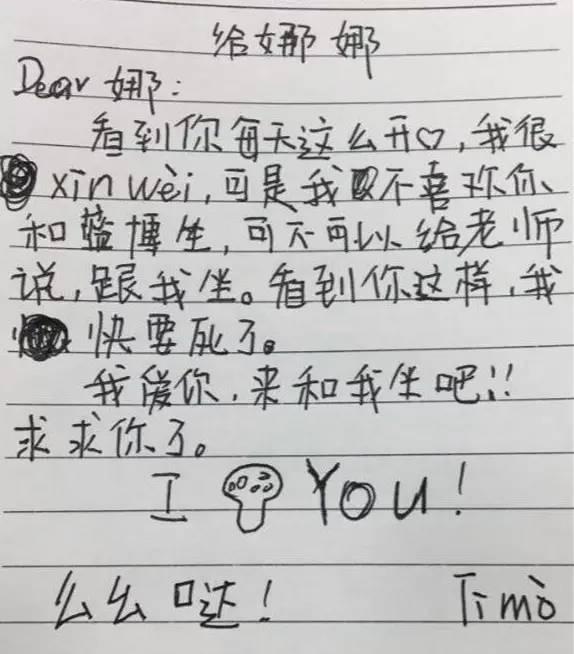 给娜娜
Dear 娜:
看到你每天这么开♡,我很
xīn wèi,可是我不喜欢你
和蓝博生,可不可以给老师
说,跟我坐。看到你这样,我
快要死了。
我爱你,来和我坐吧!!
求求你了。
I YOU!
么么哒!
Timò